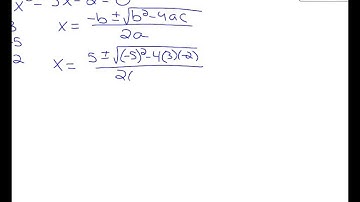 x² - 5x - 2 = 0
x = (-b ± √(b² - 4ac)) / 2a
-5
2
x = (5 ± √((-5)² - 4(3)(-2))) / 2(